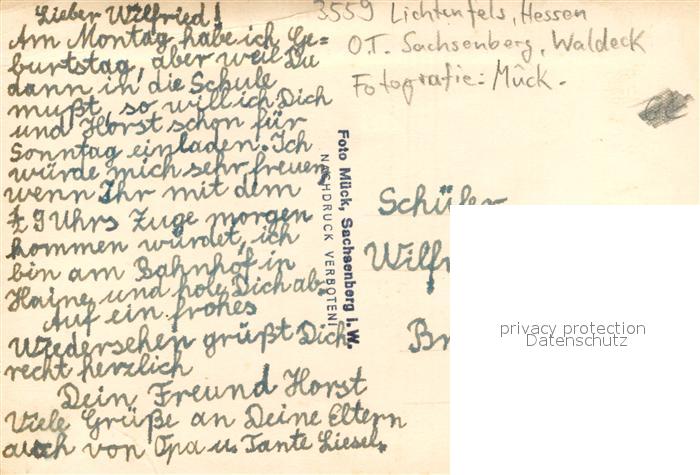 Lieber Wilfried!
Am Montag habe ich Ge=
burtstag, aber weil Du
dann in die Schule
mußt, so will ich Dich
und Horst schon für
Sonntag einladen. Ich
würde mich sehr freuen,
wenn Ihr mit dem
9 Uhrs Zuge morgen
kommen würdet, ich
bin am Bahnhof in
Haine und hole Dich ab.
Auf ein frohes
Wiedersehen grüßt Dich
recht herzlich
Dein Freund Horst
Viele Grüße an Deine Eltern
auch von Opa u. Tante Liesel.
3559 Lichtenfels, Hessen
O.T. Sachsenberg, Waldeck
Fotografie: Mück.
Foto Mück, Sachsenberg i. W.
NACHDRUCK VERBOTEN!
Schüler
Wilfr
Br
privacy protection
Datenschutz